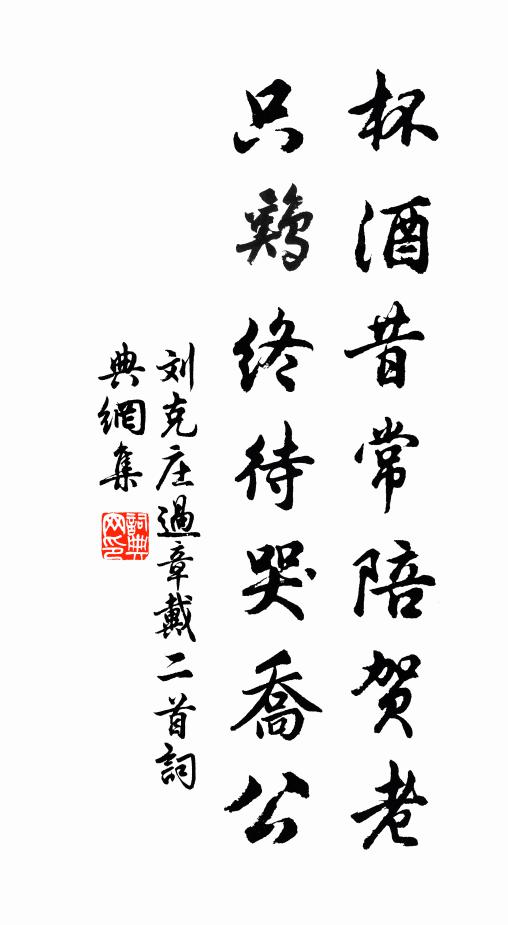 杯酒昔常陪贺老
只鷄终待哭喬公
刘克庄過章戴二首詞
典網集
詞典
网印